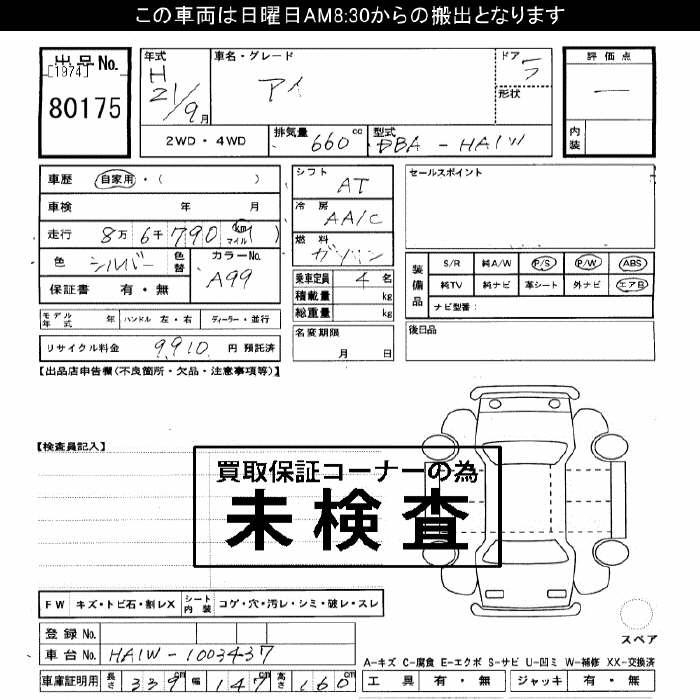 この車両は日曜日AM8:30からの搬出となります
出品No.
[1974]
80175
年式
H
21/9月
車名・グレード
アイ
ドア
5
形状
評価点
―
内装
2WD・4WD
排気量 660cc
型式 DBA-HA1W
車歴 自家用・( )
車検 年 月
走行 8万6千790 km マイル
色 シルバー 色替
カラーNo. A99
保証書 有・無
シフト AT
冷房 AA/C
燃料 ガソリン
乗車定員 4名
積載量 kg
総重量 kg
名変期限
月 日
セールスポイント
装備品
S/R 純A/W P/S P/W ABS
純TV 純ナビ 革シート 外ナビ エアB
ナビ型番:
後日品
モデル年式 年 ハンドル 左・右 ディーラー・並行
リサイクル料金 9,910 円 預託済
【出品店申告欄(不良箇所・欠品・注意事項等)】
【検査員記入】
買取保証コーナーの為
未検査
FW キズ・トビ石・割レX シート内装 コゲ・穴・汚レ・シミ・破レ・スレ
スペア
登録No.
車台No. HA1W-1003437
車庫証明用 長さ 339cm 幅 147cm 高さ 160cm
A-キズ C-腐食 E-エクボ S-サビ U-凹ミ W-補修 XX-交換済
工具 有・無 ジャッキ 有・無